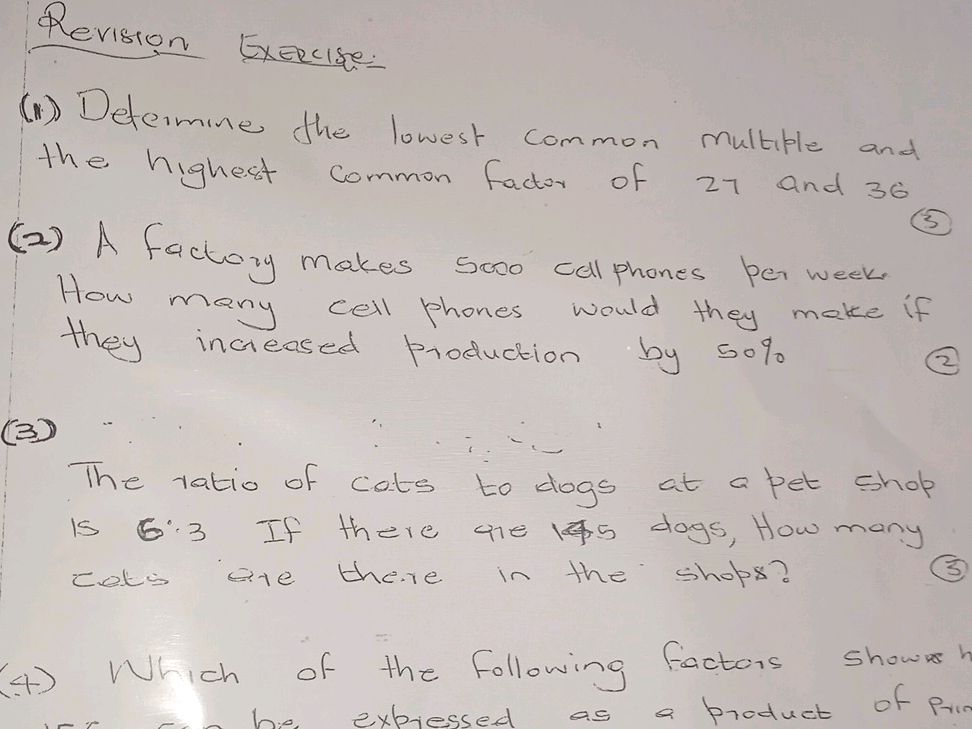 Revision Exercise.
(1) Determine the lowest common multiple and
the highest common factor of 27 and 36
(3)
(2) A factory makes 5000 cell phones per week
How many cell phones would they make if
they increased production by 50%
(2)
(3)
The ratio of cats to dogs at a pet shop
is 6:3 If there are dogs, How many
cats are there in the shops?
(3)
(4) Which of the following factors shows
can be expressed as a product of